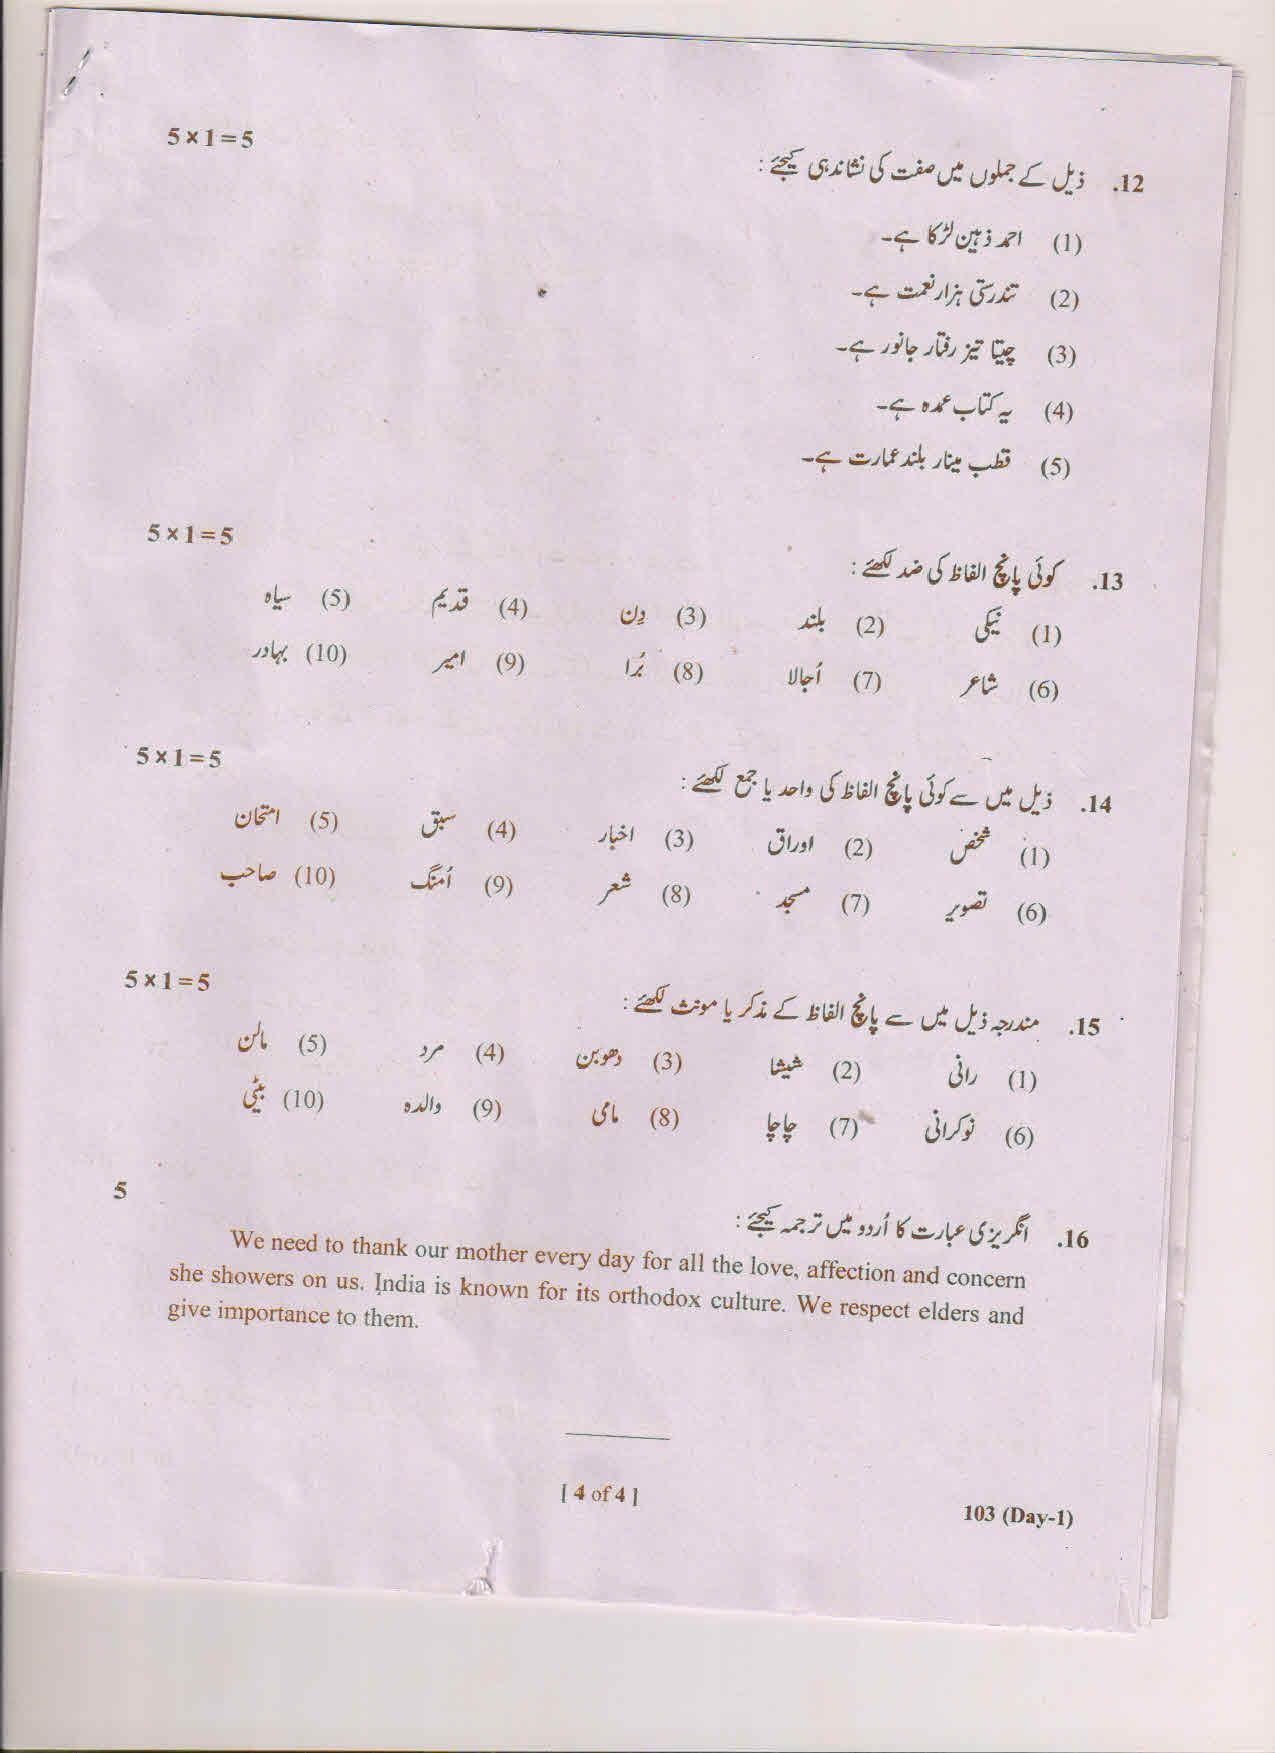 12. ذیل کے جملوں میں صفت کی نشاندہی کیجئے : 5×1=5
(1) احمد ذہین لڑکا ہے۔
(2) تندرستی ہزار نعمت ہے۔
(3) چیتا تیز رفتار جانور ہے۔
(4) یہ کتاب عمدہ ہے۔
(5) قطب مینار بلند عمارت ہے۔
13. کوئی پانچ الفاظ کی ضد لکھئے : 5×1=5
(1) نیکی (2) بلند (3) دِن (4) قدیم (5) سیاہ
(6) شاعر (7) اُجالا (8) بُرا (9) امیر (10) بہادر
14. ذیل میں سے کوئی پانچ الفاظ کی واحد یا جمع لکھئے : 5×1=5
(1) شخص (2) اوراق (3) اخبار (4) سبق (5) امتحان
(6) تصویر (7) مسجد (8) شعر (9) اُمنگ (10) صاحب
15. مندرجہ ذیل میں سے پانچ الفاظ کے مذکر یا مونث لکھئے : 5×1=5
(1) رانی (2) شیشا (3) دھوبن (4) مرد (5) مالن
(6) نوکرانی (7) چاچا (8) مامی (9) والدہ (10) بیٹی
16. انگریزی عبارت کا اُردو میں ترجمہ کیجئے : 5
We need to thank our mother every day for all the love, affection and concern
she showers on us. India is known for its orthodox culture. We respect elders and
give importance to them.
[ 4 of 4 ]
103 (Day-1)